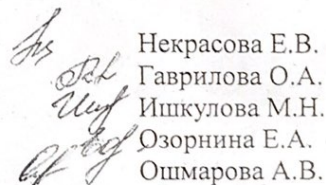 Некрасова Е.В.
Гаврилова О.А.
Ишкулова М.Н.
Озорнина Е.А.
Ошмарова А.В.